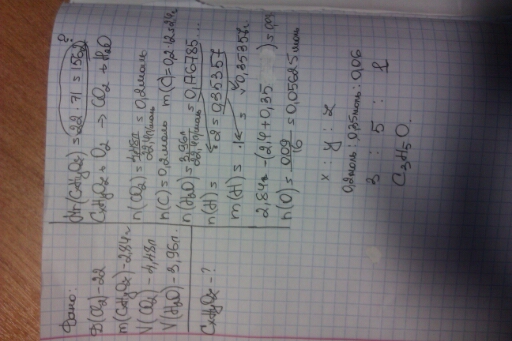 Дано:
D(O2) - 22
m(CxHyOz) - 2,84г
V(CO2) - 4,48л
V(H2O) - 3,96л.
CxHyOz - ?
Mr(CxHyOz) = 22 · 71 = 1562 ?
CxHyOz + O2 → CO2 + H2O
n(CO2) = 4,48л / 22,4л/моль = 0,2моль
n(C) = 0,2моль m(C) = 0,2·12=2,4г
n(H2O) = 3,96л / 22,4л/моль = 0,176785...
n(H) = ·2 = 0,35357
m(H) = ·1г = 0,35357г
2,84г - (2,4 + 0,35 ) = 0,09
n(O) = 0,09 / 16 = 0,05625моль
x : y : z
0,2моль : 0,35моль : 0,06
3 : 5 : 1
C3H5O.